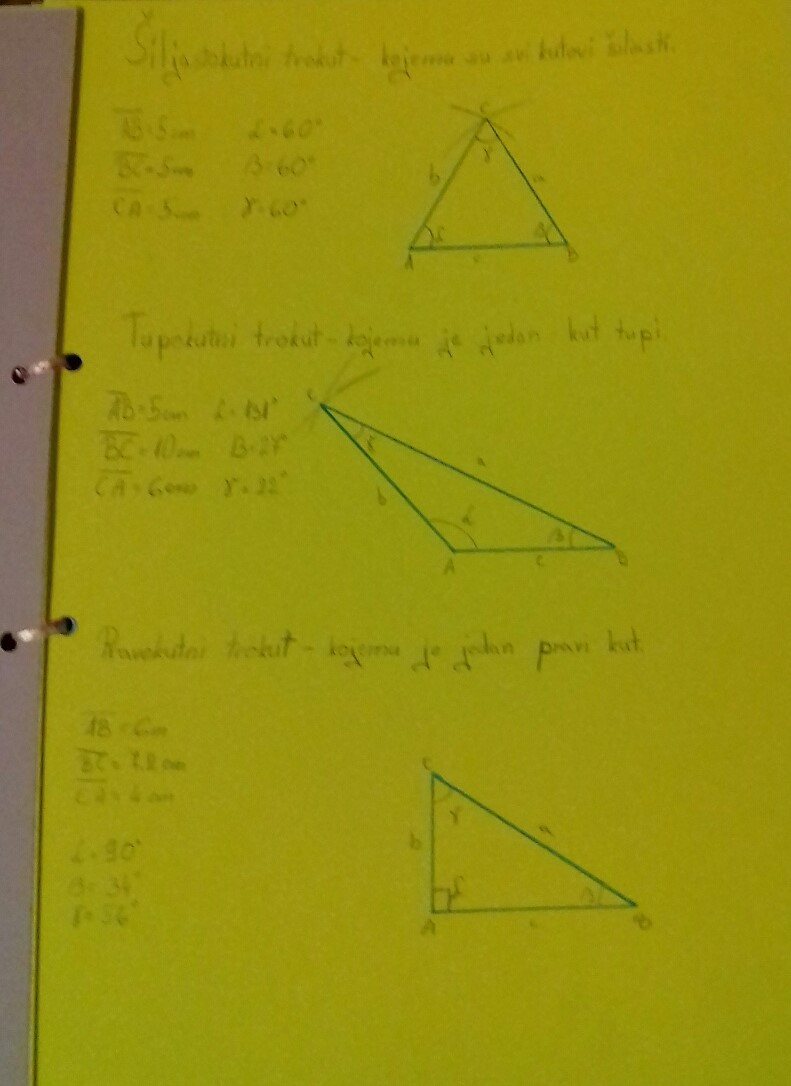 Šiljastokutni trokut - kojemu su svi kutovi šilasti.
AB=5cm α=60°
BC=5cm β=60°
CA=5cm γ=60°
C
b γ a
α β
A c B
Tupokutni trokut - kojemu je jedan kut tupi.
AB=5cm α=131°
BC=10cm β=27°
CA=6cm γ=22°
C
γ a
b α β
A c B
Pravokutni trokut - kojemu je jedan pravi kut.
AB=6m
BC=7.2cm
CA=4cm
α=90°
β=34°
γ=56°
C
γ
b a
α β
A c B